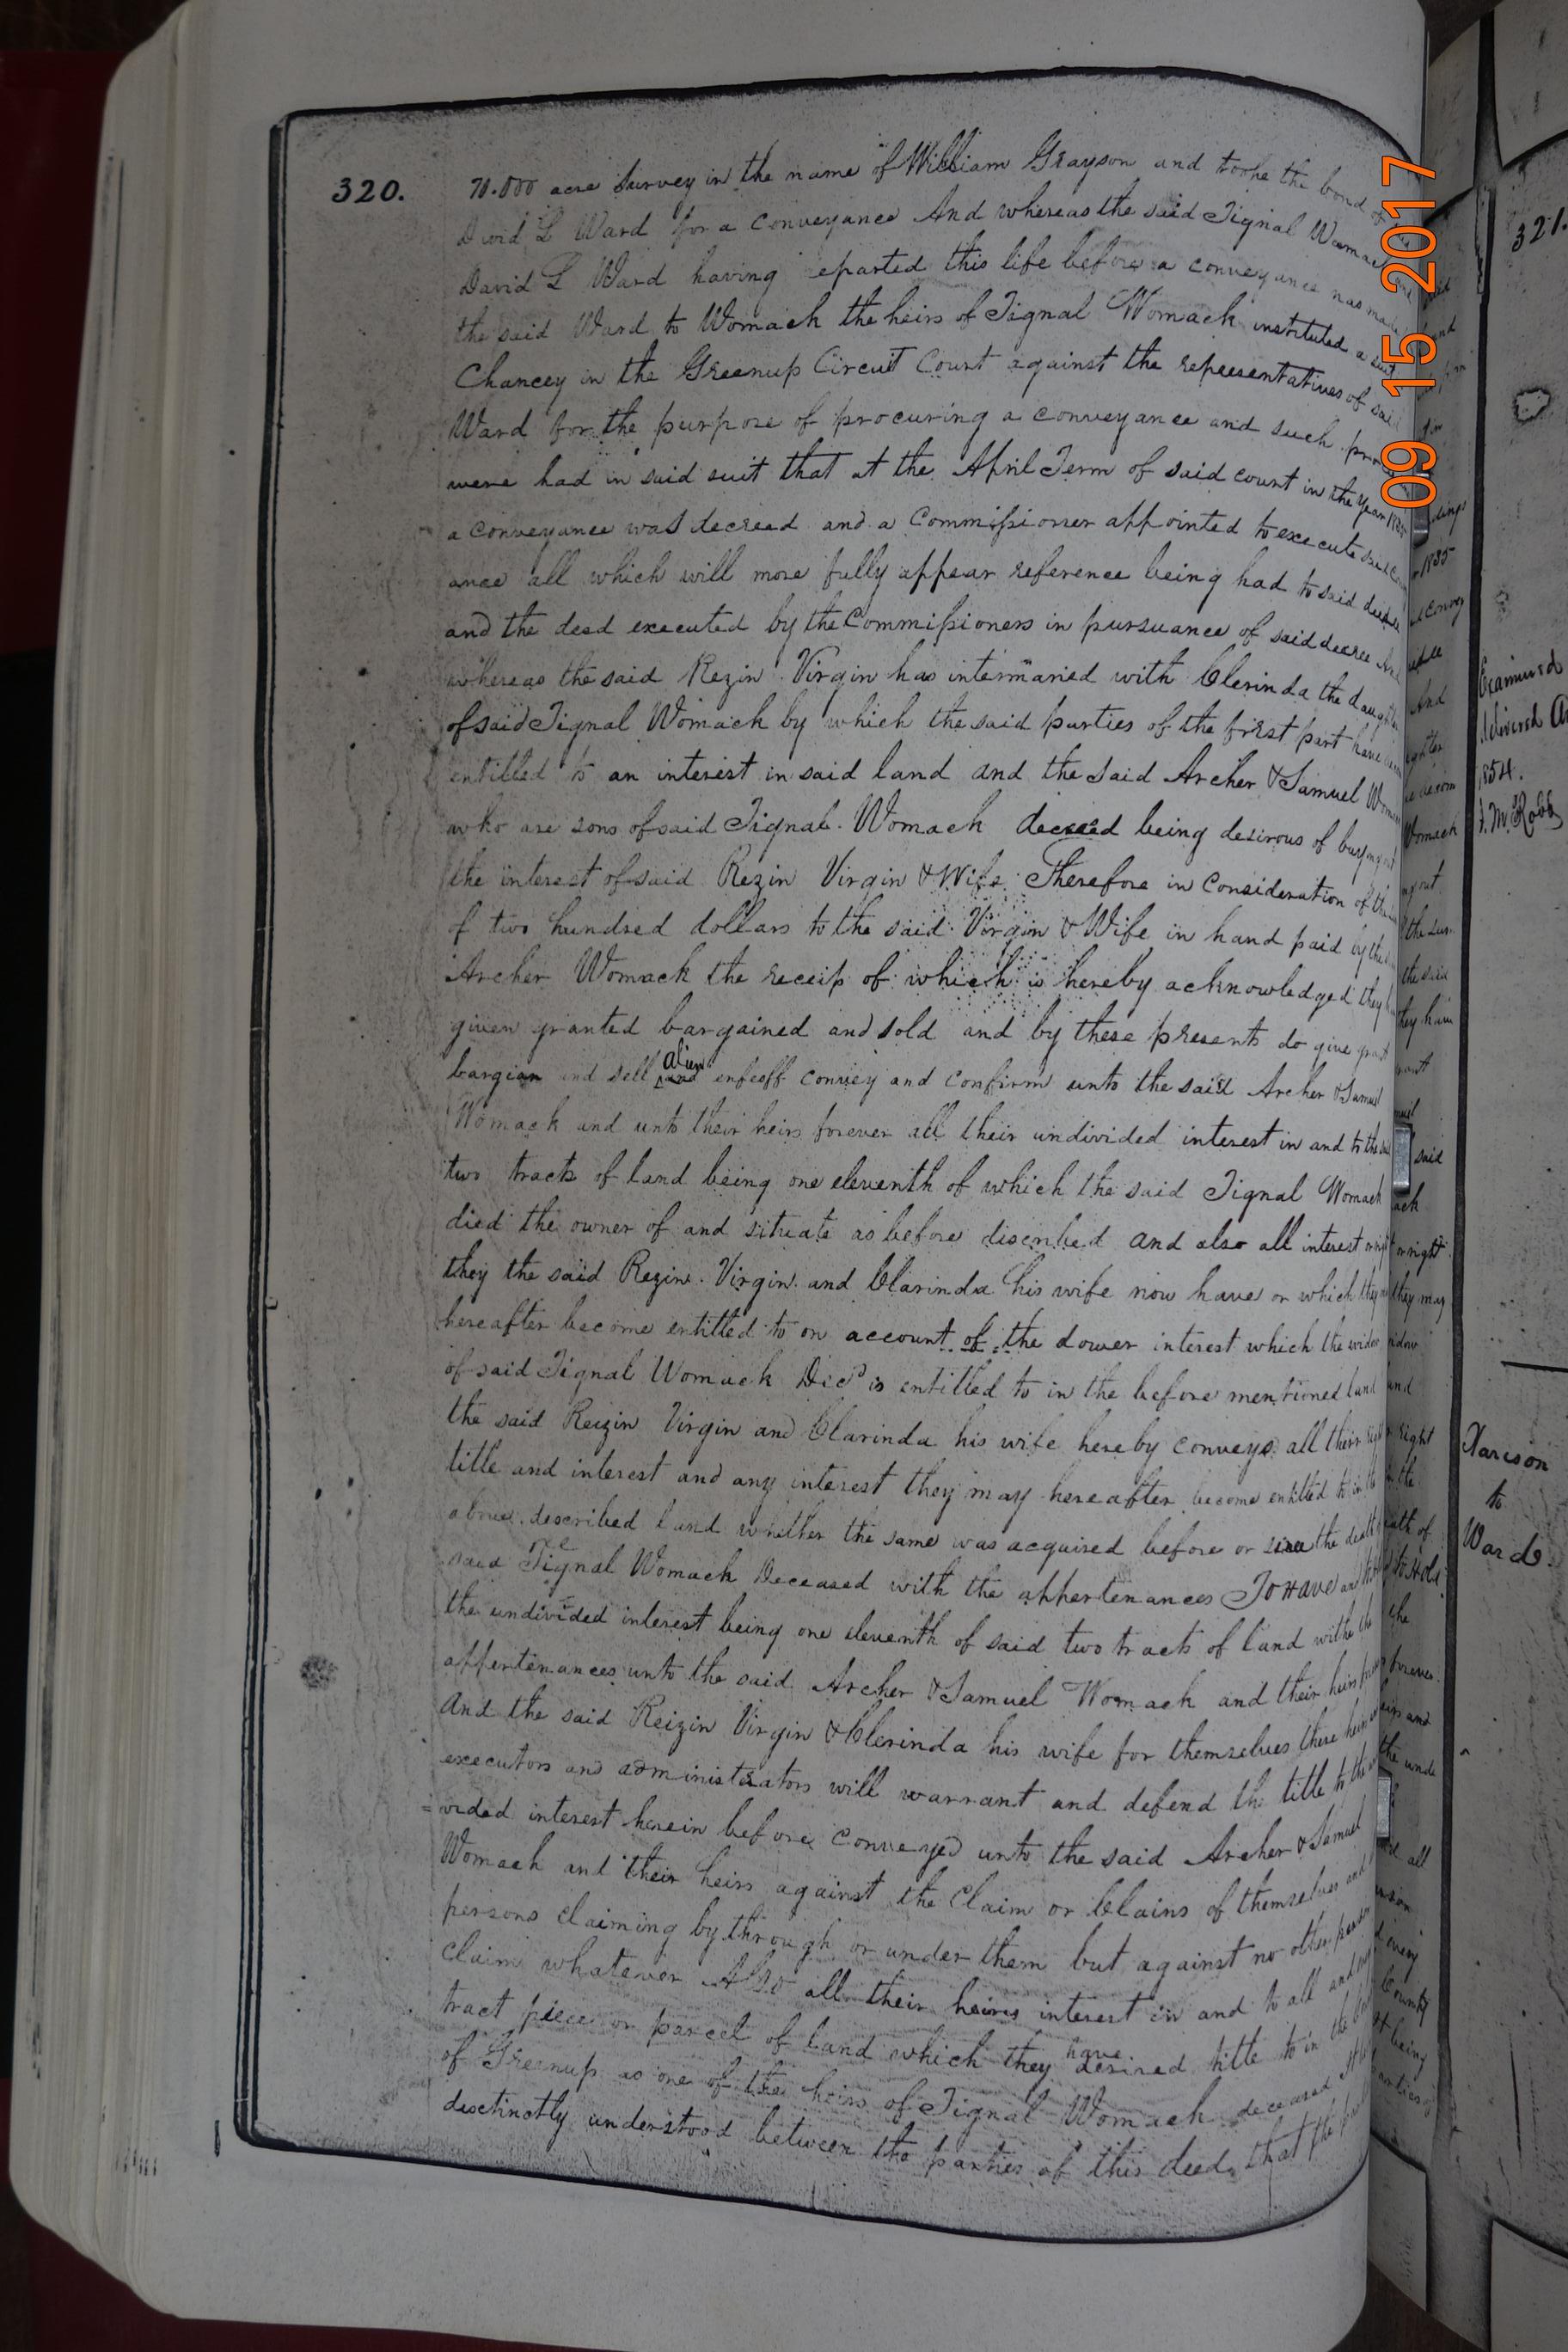 320.
70.000 acre Survey in the name of William Grayson and tooke the bond of
David L Ward for a conveyance And whereas the said Tignal Womack
David L Ward having eparted this life before a conveyance was made
the said Ward to Womack the heirs of Tignal Womack instituted a suit
Chancey in the Greenup Circuit Court against the representatives of said
Ward for the purpose of procuring a conveyance and such
were had in said suit that at the April Term of said court in the year 1835
a conveyance was decreed and a Commissioner appointed to execute said
ance all which will more fully appear reference being had to said decree
and the deed executed by the Commissioners in pursuance of said decree And
whereas the said Rezin Virgin has intermaried with Clerinda the daughter
of said Tignal Womack by which the said parties of the first part have
entitled to an interest in said land and the said Archer & Samuel Womack
who are sons of said Tignal Womack deceed being desirous of buying out
the interest of said Rezin Virgin & Wife Therefore in consideration of the
of two hundred dollars to the said Virgin & Wife in hand paid by the
Archer Womack the receip of which is hereby acknowledged they
given granted bargained and sold and by these presents do give grant
bargian and sell alien enfeoff convey and confirm unto the said Archer & Samuel
Womack and unto their heirs forever all their undivided interest in and to the said
two tracts of land being one eleventh of which the said Tignal Womack
died the owner of and situate as before discribed and also all interest or right
they the said Rezin Virgin and Clarinda his wife now have or which they may
hereafter become entitled to on account of the dower interest which the widow
of said Tignal Womack Decd is entitled to in the before mentioned land
the said Reizin Virgin and Clarinda his wife hereby conveys all their right
title and interest and any interest they may hereafter become entitled to in the
above described land whether the same was acquired before or since the death
said Tignal Womack Deceased with the appertenances To Have and
the undivided interest being one eleventh of said two tracts of land withe the
appertenances unto the said Archer & Samuel Womack and their heirs
and the said Reizin Virgin & Clerinda his wife for themselves there heirs
executors and administrators will warrant and defend the title to the
=vided interest herein before conveyed unto the said Archer & Samuel
Womack and their heirs against the Claim or Clains of themselves and
persons claiming by through or under them but against no other person
claim whatever Also all their heirs interest in and to all and
tract piece or parcel of land which they have desired title to in the
of Greenup as one of the heirs of Tignal Womack deceased
desctinctly understood between the parties of this deed that the
09 15 2017
321.
Examined
delivered
1854.
Harison
to
Ward.